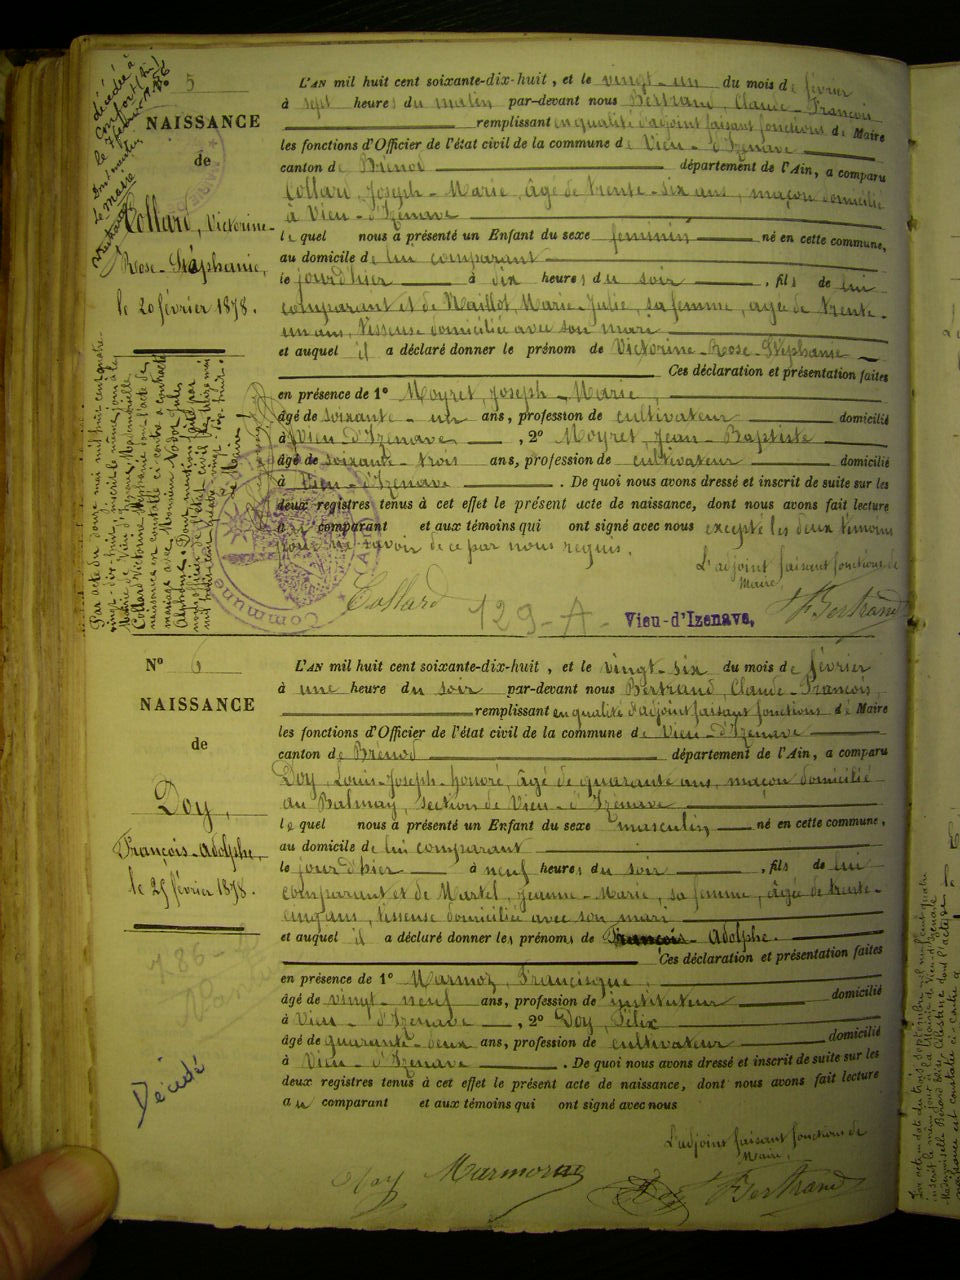 décédée à
Confort (Ain)
le 7 février 1956
Dont mention
Le Maire
5
NAISSANCE
de
Collard, Victorine-
Rose-Stéphanie,
le 20 février 1878.
L'AN mil huit cent soixante-dix-huit, et le vingt-un du mois de février
à sept heures du matin par-devant nous Bertrand, Claude-François
remplissant en qualité d'adjoint faisant fonctions de Maire
les fonctions d'Officier de l'état civil de la commune de Vieu-d'Izenave
canton de Brénod département de l'Ain, a comparu
Collard, Joseph-Marie, âgé de trente-six ans, maçon domicilié
à Vieu-d'Izenave
lequel nous a présenté un Enfant du sexe féminin né en cette commune,
au domicile de lui comparant
le jourd'hier à dix heures du soir, fils de lui
comparant et de Maillot, Marie-Julie, sa femme, âgée de trente-
un ans, tisseuse domiciliée avec son mari
et auquel il a déclaré donner le prénom de Victorine-Rose-Stéphanie
Ces déclaration et présentation faites
en présence de 1° Moyret, Joseph-Marie,
âgé de soixante-un ans, profession de cultivateur domicilié
à Vieu d'Izenave, 2° Moyret, Jean-Baptiste
âgé de soixante-trois ans, profession de cultivateur domicilié
à Vieu-d'Izenave. De quoi nous avons dressé et inscrit de suite sur les
deux registres tenus à cet effet le présent acte de naissance, dont nous avons fait lecture
au comparant et aux témoins qui ont signé avec nous excepté les deux témoins
pour ne savoir de ce par nous requis.
L'adjoint faisant fonctions de
Maire,
Collard
129-A-
Vieu-d'Izenave,
F Bertrand
Par acte du douze mai mil huit cent quatre
vingt-dix-huit, inscrit le même jour à la
Mairie de Vieu d'Izenave, Mademoiselle
Collard Victorine Stéphanie dont l'acte de
naissance est constaté ci-contre a contracté
mariage avec Monsieur
Alphonse. Dont mention faite par
nous officier de l'état civil
mil huit cent quatre-vingt-dix-huit.
Le Maire
Commune
N° 6
NAISSANCE
de
Doy,
François-Adolphe,
le 25 février 1878.
786-
Décédé
L'AN mil huit cent soixante-dix-huit, et le vingt-six du mois de février
à une heure du soir par-devant nous Bertrand, Claude-François,
remplissant en qualité d'adjoint faisant fonctions de Maire
les fonctions d'Officier de l'état civil de la commune de Vieu-d'Izenave
canton de Brénod département de l'Ain, a comparu
Doy, Louis-Joseph-honoré, âgé de quarante ans, maçon domicilié
au Balmay, section de Vieu-d'Izenave
lequel nous a présenté un Enfant du sexe masculin né en cette commune,
au domicile de lui comparant
le jourd'hier à neuf heures du soir, fils de lui
comparant et de Martel, Jeanne-Marie, sa femme, âgée de trente-
cinq ans, tisseuse domiciliée avec son mari
et auquel il a déclaré donner les prénoms de François-Adolphe.
Ces déclaration et présentation faites
en présence de 1° Marmoz, Francisque,
âgé de vingt-neuf ans, profession de instituteur domicilié
à Vieu-d'Izenave, 2° Doy, Félix
âgé de quarante-deux ans, profession de cultivateur domicilié
à Vieu-d'Izenave. De quoi nous avons dressé et inscrit de suite sur les
deux registres tenus à cet effet le présent acte de naissance, dont nous avons fait lecture
au comparant et aux témoins qui ont signé avec nous
L'adjoint faisant fonctions de
Maire,
Doy Marmoz F Bertrand